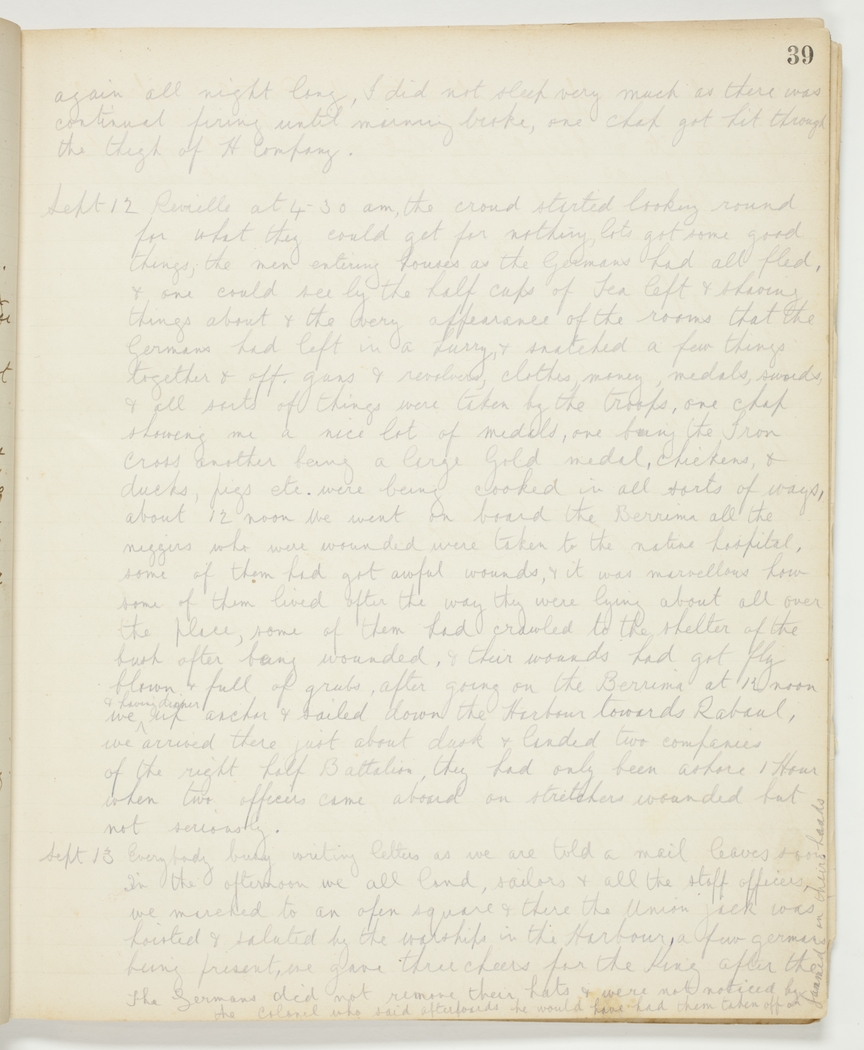 39
again all night long, I did not sleep very much as there was
continual firing until morning broke, one chap got hit through
the thigh of H Company.
Sept 12 Reveille at 4-30 am, the crowd started looking round
for what they could get for nothing, lots got some good
things, the men entering houses as the Germans had all fled,
& one could see by the half cups of Tea left & shaving
things about & the very appearance of the rooms that the
Germans had left in a hurry, & snatched a few things
together & off. guns & revolvers, clothes, money, medals, swords,
& all sorts of things were taken by the troops, one chap
showing me a nice lot of medals, one being the Iron
Cross another being a large Gold medal, chickens, &
ducks, pigs etc. were being cooked in all sorts of ways,
about 12 noon we went on board the Berrima all the
niggers who were wounded were taken to the native hospital,
some of them had got awful wounds, & it was marvellous how
some of them lived after the way they were lying about all over
the place, some of them had crawled to the shelter of the
bush after being wounded, & their wounds had got fly
blown & full of grubs, after going on the Berrima at 12 noon
& having dinner
we up anchor & sailed down the Harbour towards Rabaul,
we arrived there just about dusk & landed two companies
of the right half Battalion, they had only been ashore 1 Hour
when two officers came aboard on stretchers wounded but
not seriously.
Sept 13 Everybody busy writing letters as we are told a mail leaves soon
In the afternoon we all land, sailors & all the staff officers,
we marched to an open square & there the Union jack was
hoisted & saluted by the warships in the Harbour, a few germans
being present, we gave three cheers for the King after the
The Germans did not remove their hats & were not noticed by
the Colonel who said afterwards he would have had them taken off or
jammed on their heads